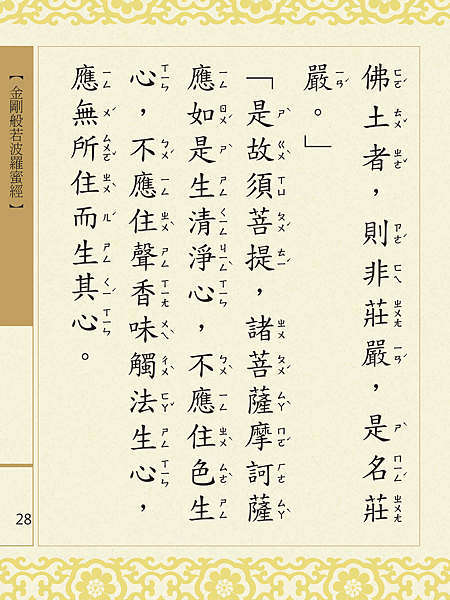 佛土者，則非莊嚴，是名莊
嚴。」
「是故須菩提，諸菩薩摩訶薩
應如是生清淨心，不應住色生
心，不應住聲香味觸法生心，
應無所住而生其心。
【金剛般若波羅蜜經】
28